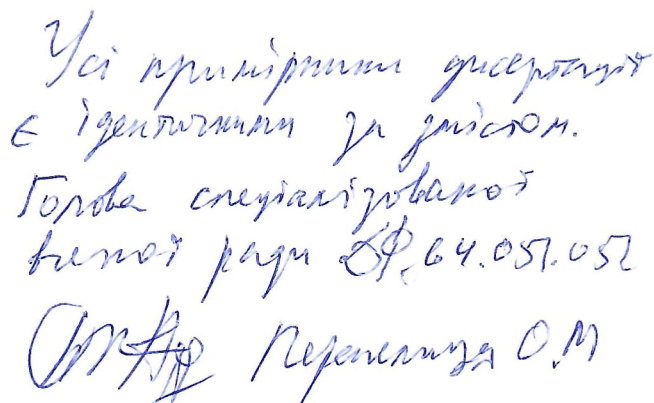 Усі примірники дисертації
є ідентичними за змістом.
Голова спеціалізованої
вченої ради ДФ 64.051.052
Перепелиця О.М